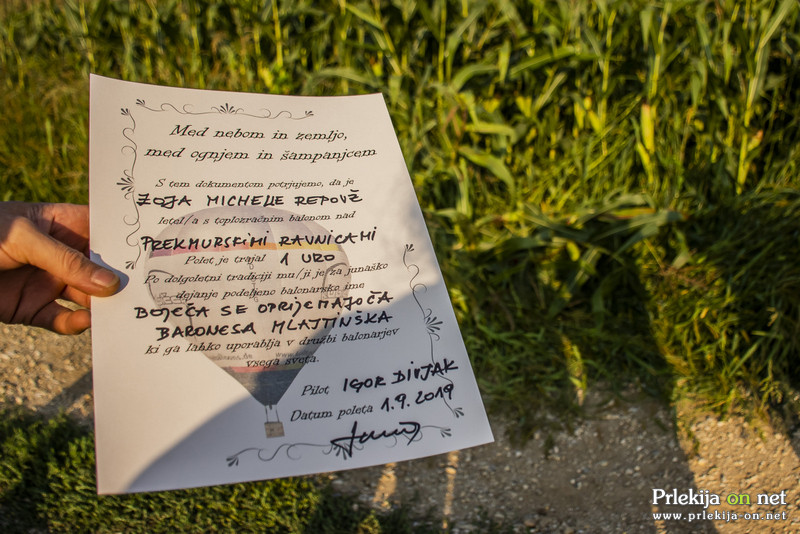 Med nebom in zemljo,
med ognjem in šampanjcem
S tem dokumentom potrjujemo, da je
ZOJA MICHELLE REPOVŽ
letel/a s toplozračnim balonom nad
PREKMURSKIMI RAVNICAMI
Polet je trajal 1 URO
Po dolgoletni tradiciji mu/ji je za junaško
dejanje podeljeno balonarsko ime
BOJEČA SE OPRIJEMAJOČA
BARONESA MLAJTINŠKA
ki ga lahko uporablja v družbi balonarjev
vsega sveta.
Pilot IGOR DIVJAK
Datum poleta 1.9.2019
Prlekija on net
www.prlekija-on.net